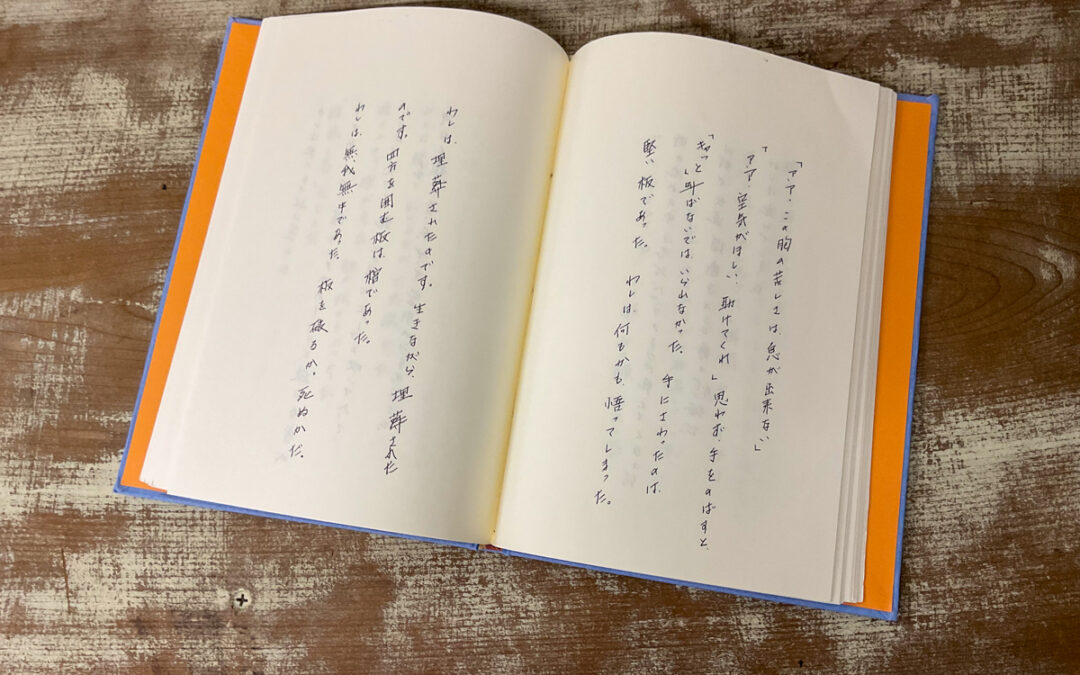 「アア・この胸の苦しさは、息が出来ない」
「アア・空気がほしい、助けてくれ」思わず、手をのばすと、
「ギャッと」叫ばないでは、いられなかった。 手にさわったのは、
堅い板であった。 わしは何もかも、悟ってしまった。
わしは、埋葬されたのです。生きながら、埋葬された
のです。四方を囲む板は、棺であった。
わしは、無我無中であった。 板を破るか、死ぬかだ。